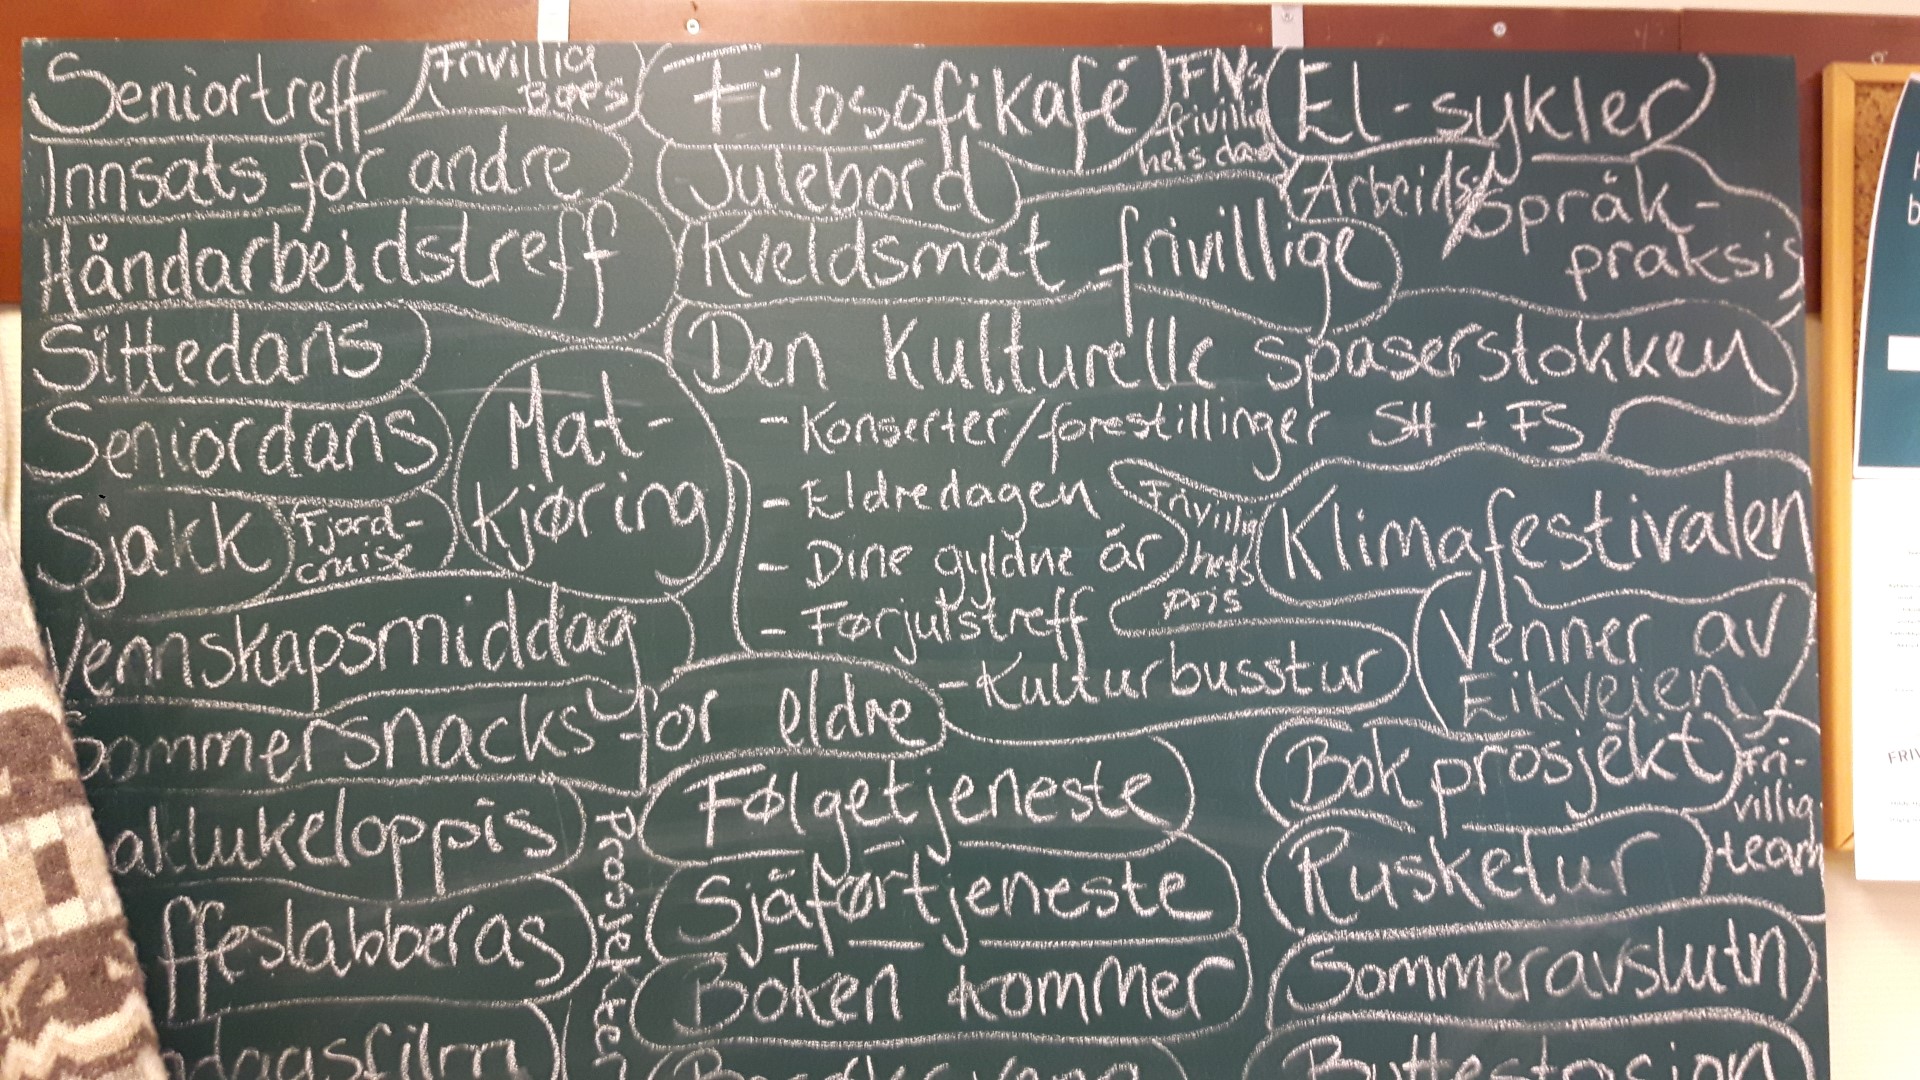 Seniortreff
Frivillig
Børs
Filosofikafé
FNs
frivillig
hets dag
El-sykler
Innsats for andre
Julebord
Arbeids/språk-
praksis
Håndarbeidstreff
Kveldsmat frivillige
Sittedans
Den Kulturelle spaserstokken
- Konserter/forestillinger SH + FS
- Eldredagen
- Dine gyldne år
- Førjulstreff
- Kulturbusstur
Seniordans
Mat-
kjøring
Sjakk
Fjord-
cruise
Frivillig
hets
pris
Klimafestivalen
Vennskapsmiddag
Venner av
Eikveien
Sommersnacks for eldre
Bokprosjekt
Fri-
villig
team
aklukeloppis
Følgetjeneste
Rusketur
ffeslabberas
Sjåførtjeneste
Sommeravslutn
Boken kommer
dagsfilm